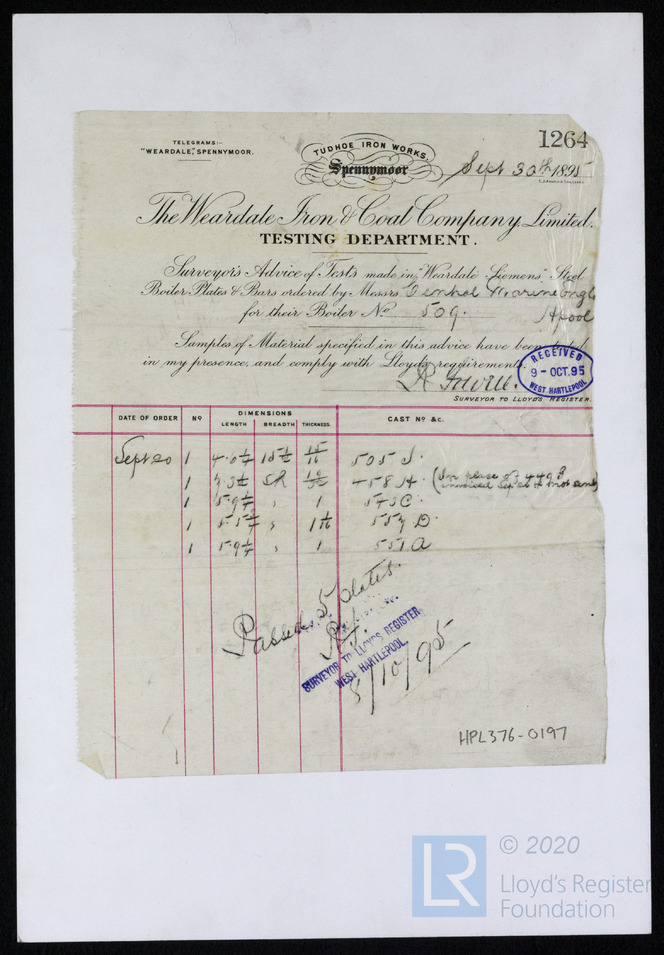 1264
TELEGRAMS:-
"WEARDALE," SPENNYMOOR.
TUDHOE IRON WORKS,
Spennymoor
Sept 30th 1895
The Weardale Iron & Coal Company, Limited.
TESTING DEPARTMENT.
Surveyor's Advice of Tests made in "Weardale-Siemens" Steel
Boiler Plates & Bars ordered by Messrs Central Marine Engs
for their Boiler No 509. Hpool
Samples of Material specified in this advice have been tested
in my presence, and comply with Lloyd's requirements.
RECEIVED
9 - OCT. 95
WEST HARTLEPOOL
SURVEYOR TO LLOYD'S REGISTER.
DATE OF ORDER No DIMENSIONS CAST No &c.
LENGTH BREADTH THICKNESS
Sept 20 1 505 J.
1 458 H (In place of
1 1 543 C.
1 557 D.
1 1 551 A
Passed 5 plates.
SURVEYOR TO LLOYD'S REGISTER,
WEST HARTLEPOOL.
8/10/95
HPL376-0197
LR © 2020
Lloyd's Register
Foundation